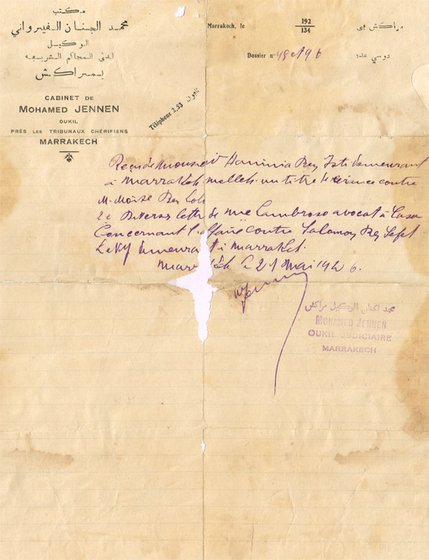 مكتب
محمد الجنان القيرواني
الوكيل
لدى المحاكم الشريفة
بمراكش
CABINET DE
MOHAMED JENNEN
OUKIL
PRÈS LES TRIBUNAUX CHÉRIFIENS
MARRAKECH
Téléphone 2.53 تلفون
Marrakech, le 192
134
مراكش في
Dossier nº
دوسي عدد
Reçu de Monsieur Haninia Ben demeurant
à Marrakech mellah un titre de créance contre
M. Moïse Ben
2e Diverses lettres de me Cambroso avocat à Casa
Concernant l'affaire contre Salomon Ben
demeurant à Marrakech.
Marrakech le 21 Mai 192 6.
محمد الجنان الوكيل مراكش
MOHAMED JENNEN
OUKIL JUDICIAIRE
MARRAKECH